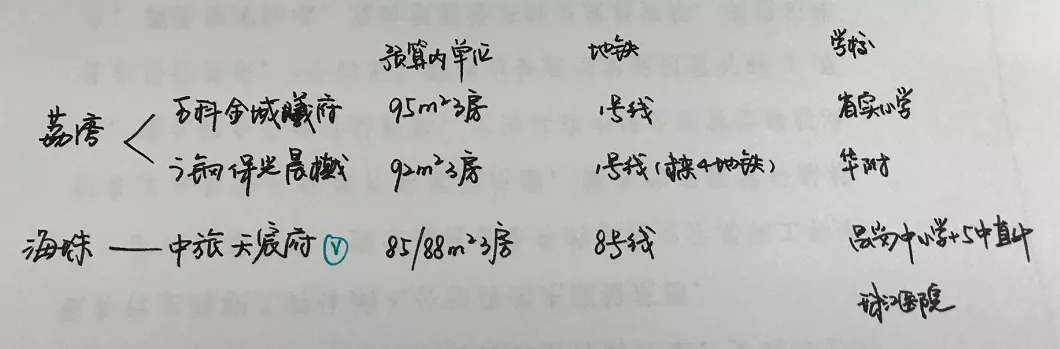 预算内单位 地铁 学校
万科金域曦府 95m²3房 1号线 省实小学
荔湾
广钢保光晨樾 92m²3房 1号线(地铁) 华附
海珠 — 中旅天宸府 √ 85/88m²3房 8号线 昌岗中小学+5中直升
珠江医院